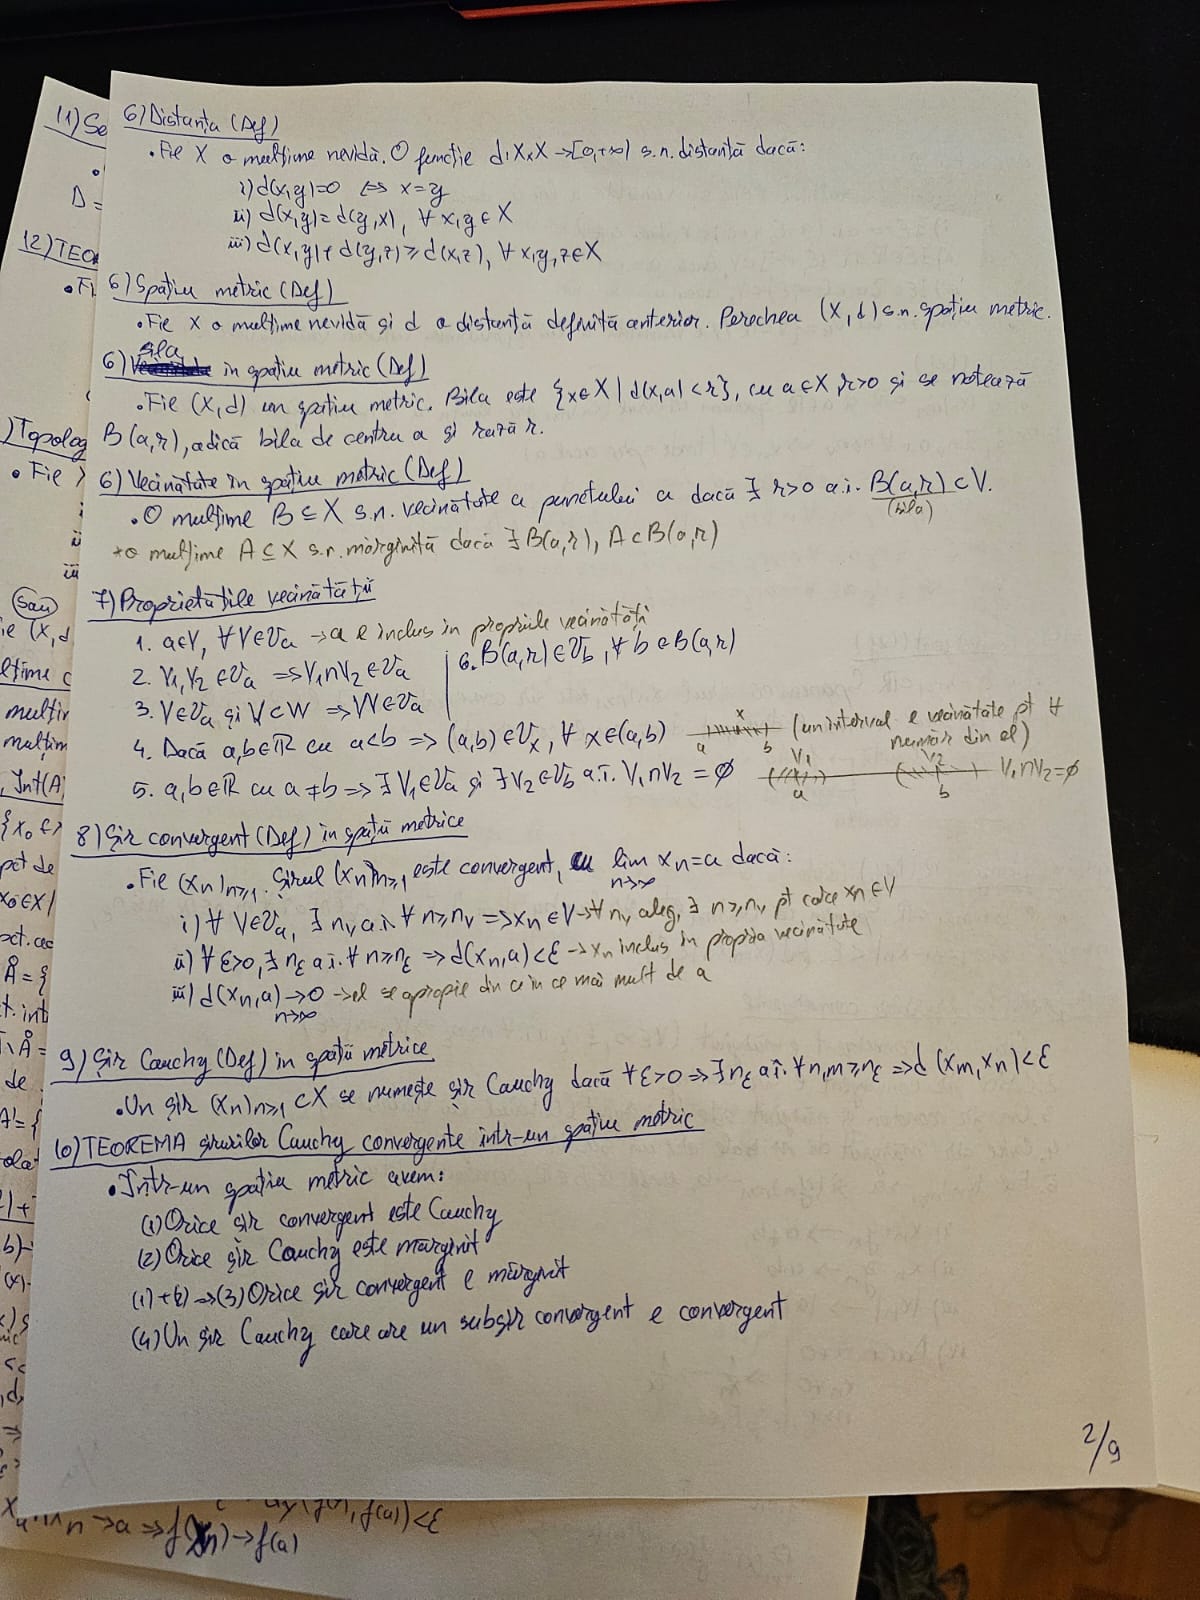 6) Distanța (Def)
• Fie X o mulțime nevidă. O funcție d: X×X → [0,+∞) s.n. distanță dacă:
i) d(x,y)=0 ⇔ x=y
ii) d(x,y)=d(y,x), ∀ x,y∈X
iii) d(x,y)+d(y,z)≥d(x,z), ∀ x,y,z∈X
6) Spațiu metric (Def)
• Fie X o mulțime nevidă și d o distanță definită anterior. Perechea (X,d) s.n. spațiu metric.
6) Bila în spațiu metric (Def)
• Fie (X,d) un spațiu metric. Bila este {x∈X | d(x,a)<r}, cu a∈X, r>0 și se notează
B(a,r), adică bila de centru a și rază r.
6) Vecinătate în spațiu metric (Def)
• O mulțime B⊆X s.n. vecinătate a punctului a dacă ∃ r>0 a.î. B(a,r)⊂V.
(bila)
* O mulțime A⊆X s.n. mărginită dacă ∃ B(a,r), A⊂B(a,r)
7) Proprietățile vecinătății
1. a∈V, ∀V∈𝒱a → a e inclus în propriile vecinătăți
2. V1,V2∈𝒱a ⇒ V1∩V2∈𝒱a
6. B(a,r)∈𝒱b, ∀ b∈B(a,r)
3. V∈𝒱a și V⊂W ⇒ W∈𝒱a
4. Dacă a,b∈ℝ cu a<b ⇒ (a,b)∈𝒱x, ∀ x∈(a,b)
a x b (un interval e vecinătate pt ∀
număr din el)
5. a,b∈ℝ cu a≠b ⇒ ∃ V1∈𝒱a și ∃ V2∈𝒱b a.î. V1∩V2=∅
V1 V2
a b V1∩V2=∅
8) Șir convergent (Def) în spații metrice
• Fie (xn)n≥1. Șirul (xn)n≥1 este convergent, cu lim xn=a dacă:
n→∞
i) ∀ V∈𝒱a, ∃ nv a.î. ∀ n≥nv ⇒ xn∈V → ∀ nv aleg, ∃ n≥nv pt care xn∈V
ii) ∀ε>0, ∃ nε a.î. ∀ n≥nε ⇒ d(xn,a)<ε → xn inclus în propria vecinătate
iii) d(xn,a) → 0 → el se apropie din ce în ce mai mult de a
n→∞
9) Șir Cauchy (Def) în spații metrice
• Un șir (xn)n≥1 ⊂X se numește șir Cauchy dacă ∀ε>0 ⇒ ∃ nε a.î. ∀n,m≥nε ⇒ d(xm,xn)<ε
10) TEOREMA șirurilor Cauchy convergente într-un spațiu metric
• Într-un spațiu metric avem:
(1) Orice șir convergent este Cauchy
(2) Orice șir Cauchy este mărginit
(1)+(2) ⇒ (3) Orice șir convergent e mărginit
(4) Un șir Cauchy care are un subșir convergent e convergent
2/9
11) Se
D=
12) TEO
• Fi
) Topolog
• Fie
ii
iii
Sau
ie (X,d
ulțime
mulțim
mulțim
Int(A)
{x0∈
x0∈X
Å={
Å=
de
A'={
olat
xn→a ⇒ f(xn)→f(a)
f(a))<ε